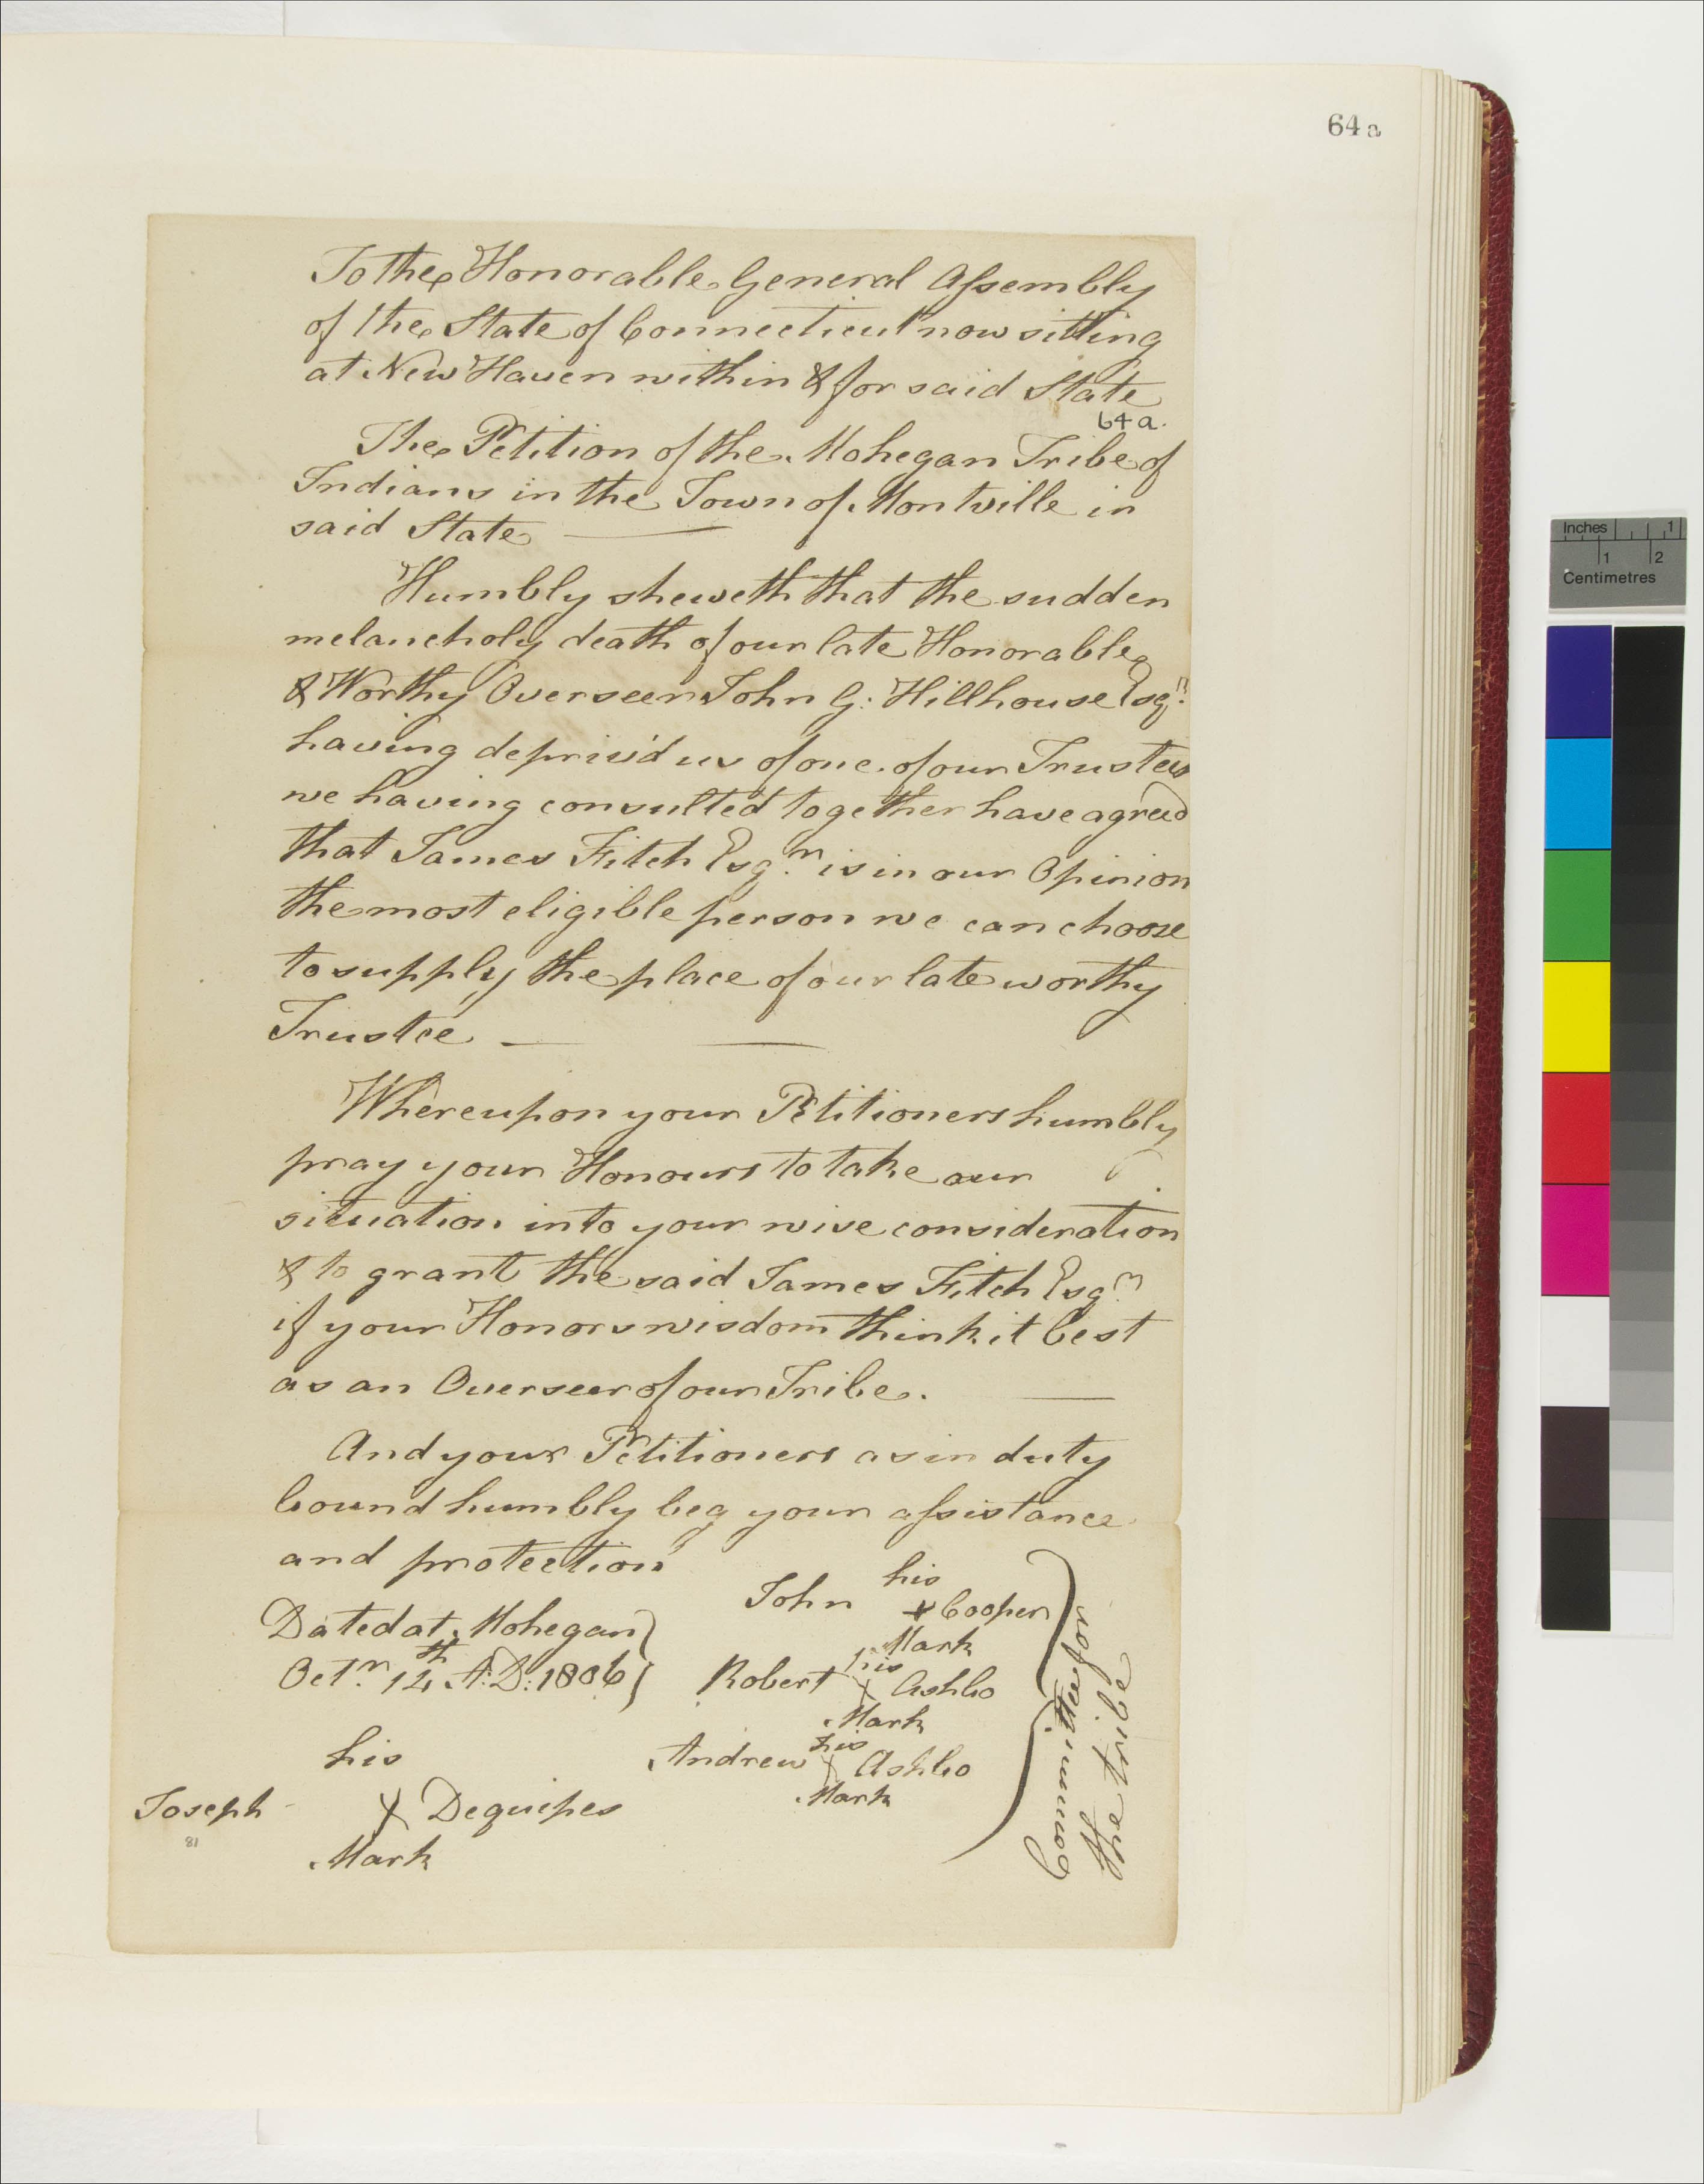 64a
To the Honorable General Assembly
of the State of Connecticut now sitting
at New Haven within & for said State
64a.
The Petition of the Mohegan Tribe of
Indians in the Town of Montville in
said State
Humbly sheweth that the sudden
melancholy death of our late Honorable
& Worthy Overseer John G: Hillhouse Esqr.
having depriv'd us of one of our Trustees
we having consulted together have agreed
that James Fitch Esqr. is in our Opinion
the most eligible person we can choose
to supply the place of our late worthy
Trustee
Whereupon your Petitioners humbly
pray your Honours to take our
situation into your wise consideration
& to grant the said James Fitch Esqr.
if your Honors wisdom think it best
as an Overseer of our Tribe.
And your Petitioners as in duty
bound humbly beg your assistance
and protection
Dated at Mohegan
Octr. 14th A:D: 1806
John his x Cooper
Mark
Robert his x Ashbo
Mark
Andrew his x Ashbo
Mark
his
Joseph x Dequipes
Mark
81
Committee for
the tribe
Inches 1
1 2
Centimetres